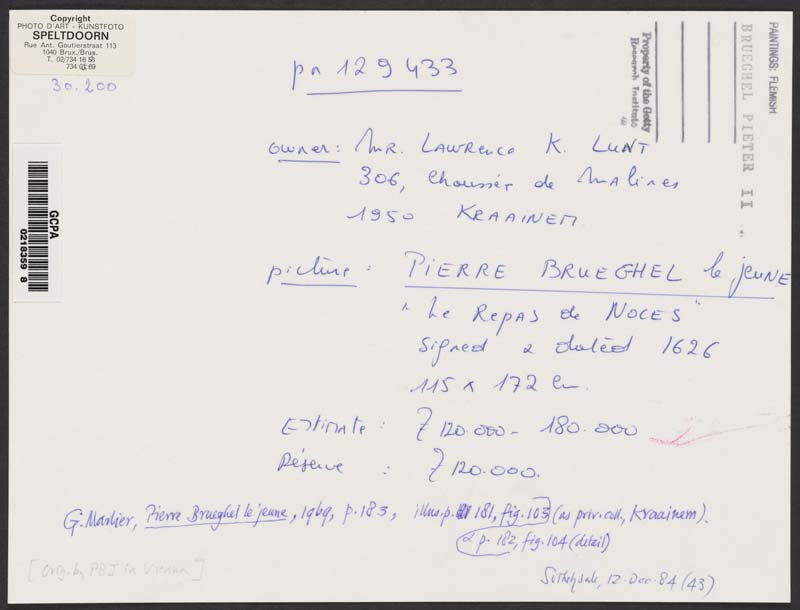 Copyright
PHOTO D'ART - KUNSTFOTO
SPELTDOORN
Rue Ant. Gautierstraat 113
1040 Brux./Brus.
T. 02/734 16 58
734 01 69
30.200
pn 129 433
Property of the Getty
Research Institute
PAINTINGS: FLEMISH
BRUEGHEL PIETER II
GCPA
0218359 8
owner: MR. LAWRence K. LUNT
306, Chaussée de Malines
1950 KRAAINEM
picture: PIERRE BRUEGHEL le jeuNE
"Le Repas de NOCES"
signed & datéd 1626
115 x 172 cm.
Estimate: £ 120.000 - 180.000
Réserve: £ 120.000.
G. Marlier, Pierre Brueghel le jeune, 1969, p. 183, illus. p. 181, fig. 103 (as priv. coll., Kraainem).
& p. 182, fig. 104 (detail)
[Orig. by PBJ in Vienna]
Sothebysale, 12-Dec-84 (43)